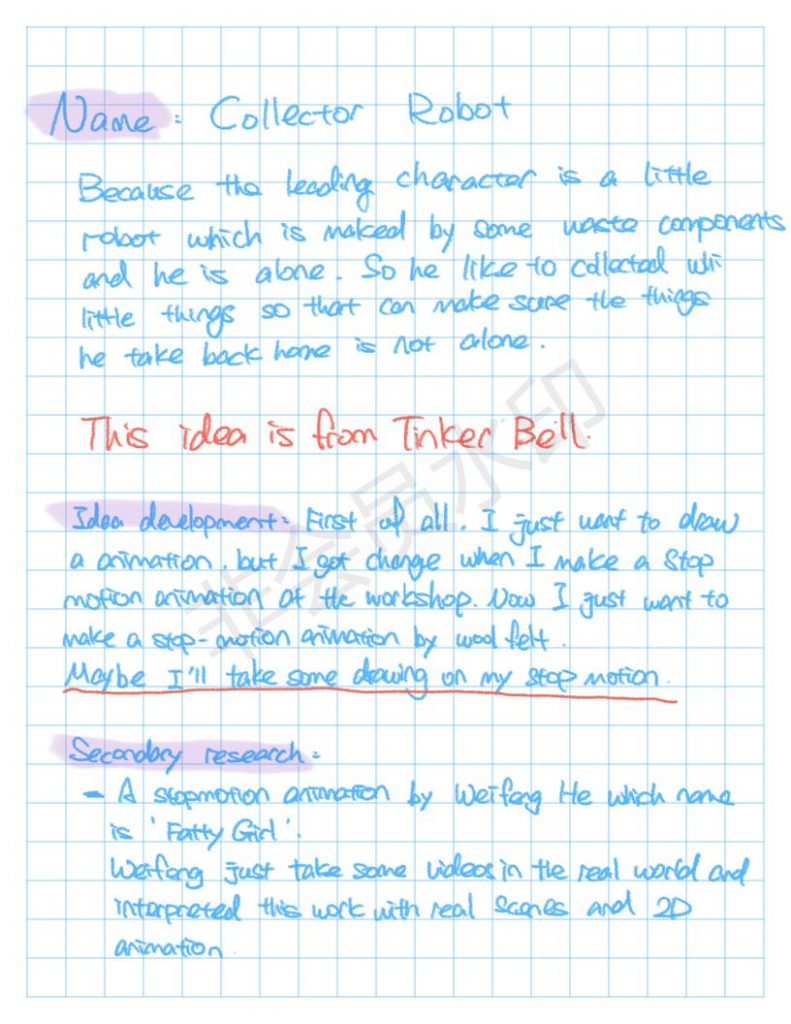 Name: Collector Robot
Because the leading character is a little
robot which is maked by some waste components
and he is alone. So he like to collected
little things so that can make sure the things
he take back home is not alone.
This idea is from Tinker Bell.
Idea development: First of all. I just want to draw
a animation, but I got change when I make a Stop
motion animation at the workshop. Now I just want to
make a stop-motion animation by wool felt.
Maybe I'll take some drawing on my stop motion.
Secondary research:
- A stopmotion animation by Weifang He which name
is 'Fatty Girl'.
Weifang just take some videos in the real world and
interpreted this work with real scenes and 2D
animation.
非会员水印